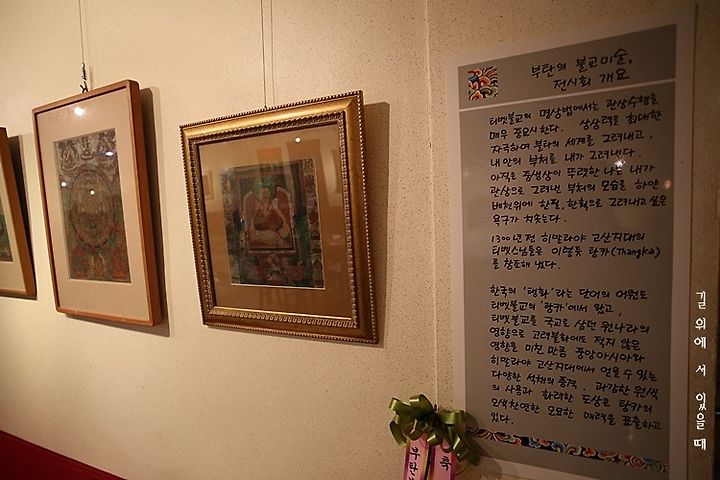 부탄의 불교미술,
전시회 개요
티벳불교의 명상법에서는 관상수행을
매우 중요시한다. 상상력을 최대한
자극하여 붓타의 세계를 그려내고,
내 안의 부처를 내가 그려낸다.
아직은 중생상이 뚜렷한 나는 내가
관상으로 그려낸 부처의 모습을 하얀
베천위에 한필, 한획으로 그려내고 싶은
욕구가 치솟는다.
1300년 전 히말라야 고산지대의
티벳스님들은 이렇듯 탕카(Thangka)
를 창조해 냈다.
한국의 '탱화'라는 단어의 어원도
티벳불교의 탕카'에서 왔고,
티벳불교를 국교로 삼던 원나라의
영향으로 고려불화에도 적지 않은
영향을 미친 만큼 중앙아시아와
히말라야 고산지대에서 얻을 수 있는
다양한 석채의 품격, 과감한 원색
의 사용과 화려한 도상은 탕카의
오색찬연한 오묘한 매력을 표출하고
있다.
축
부탄
길 위에 서 있을 때